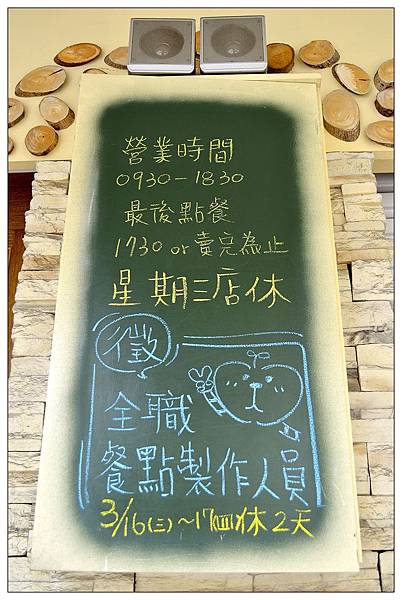 營業時間
0930-1830
最後點餐
1730 or 賣完為止
星期三店休
徵
全職
餐點製作人員
3/16(三)~17(四)休2天